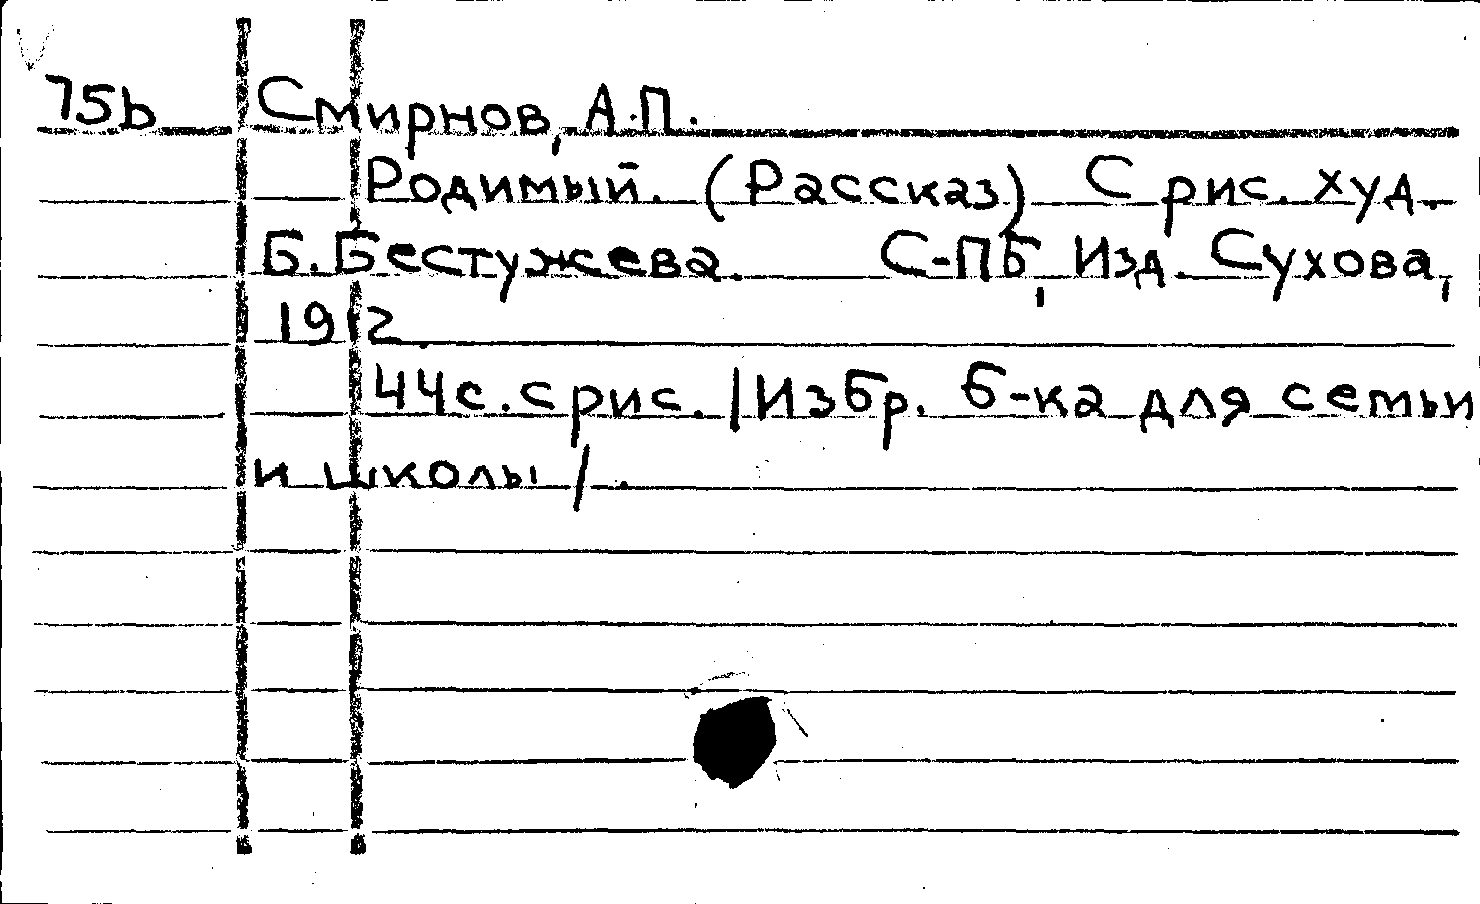 75b Смирнов, А.П.
Родимый. (Рассказ) С рис. худ.
Б. Бестужева. С-ПБ, Изд. Сухова,
1912.
44с. с рис. /Избр. б-ка для семьи
и школы/.